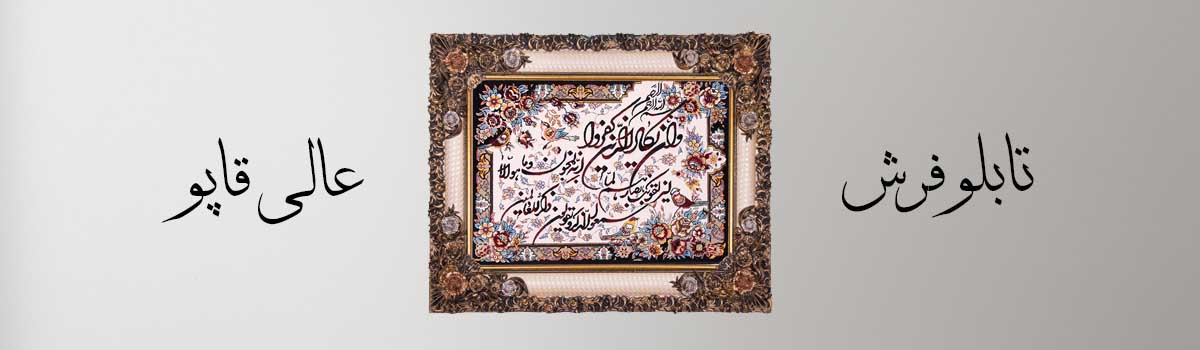 تابلو فرش
بسم الله الرحمن الرحیم
وان یکاد الذین کفروا
لیزلقونک بابصارهم لما
سمعوا الذکر و یقولون
انه لمجنون و ما هو الا
ذکر للعالمین
عالی قاپو